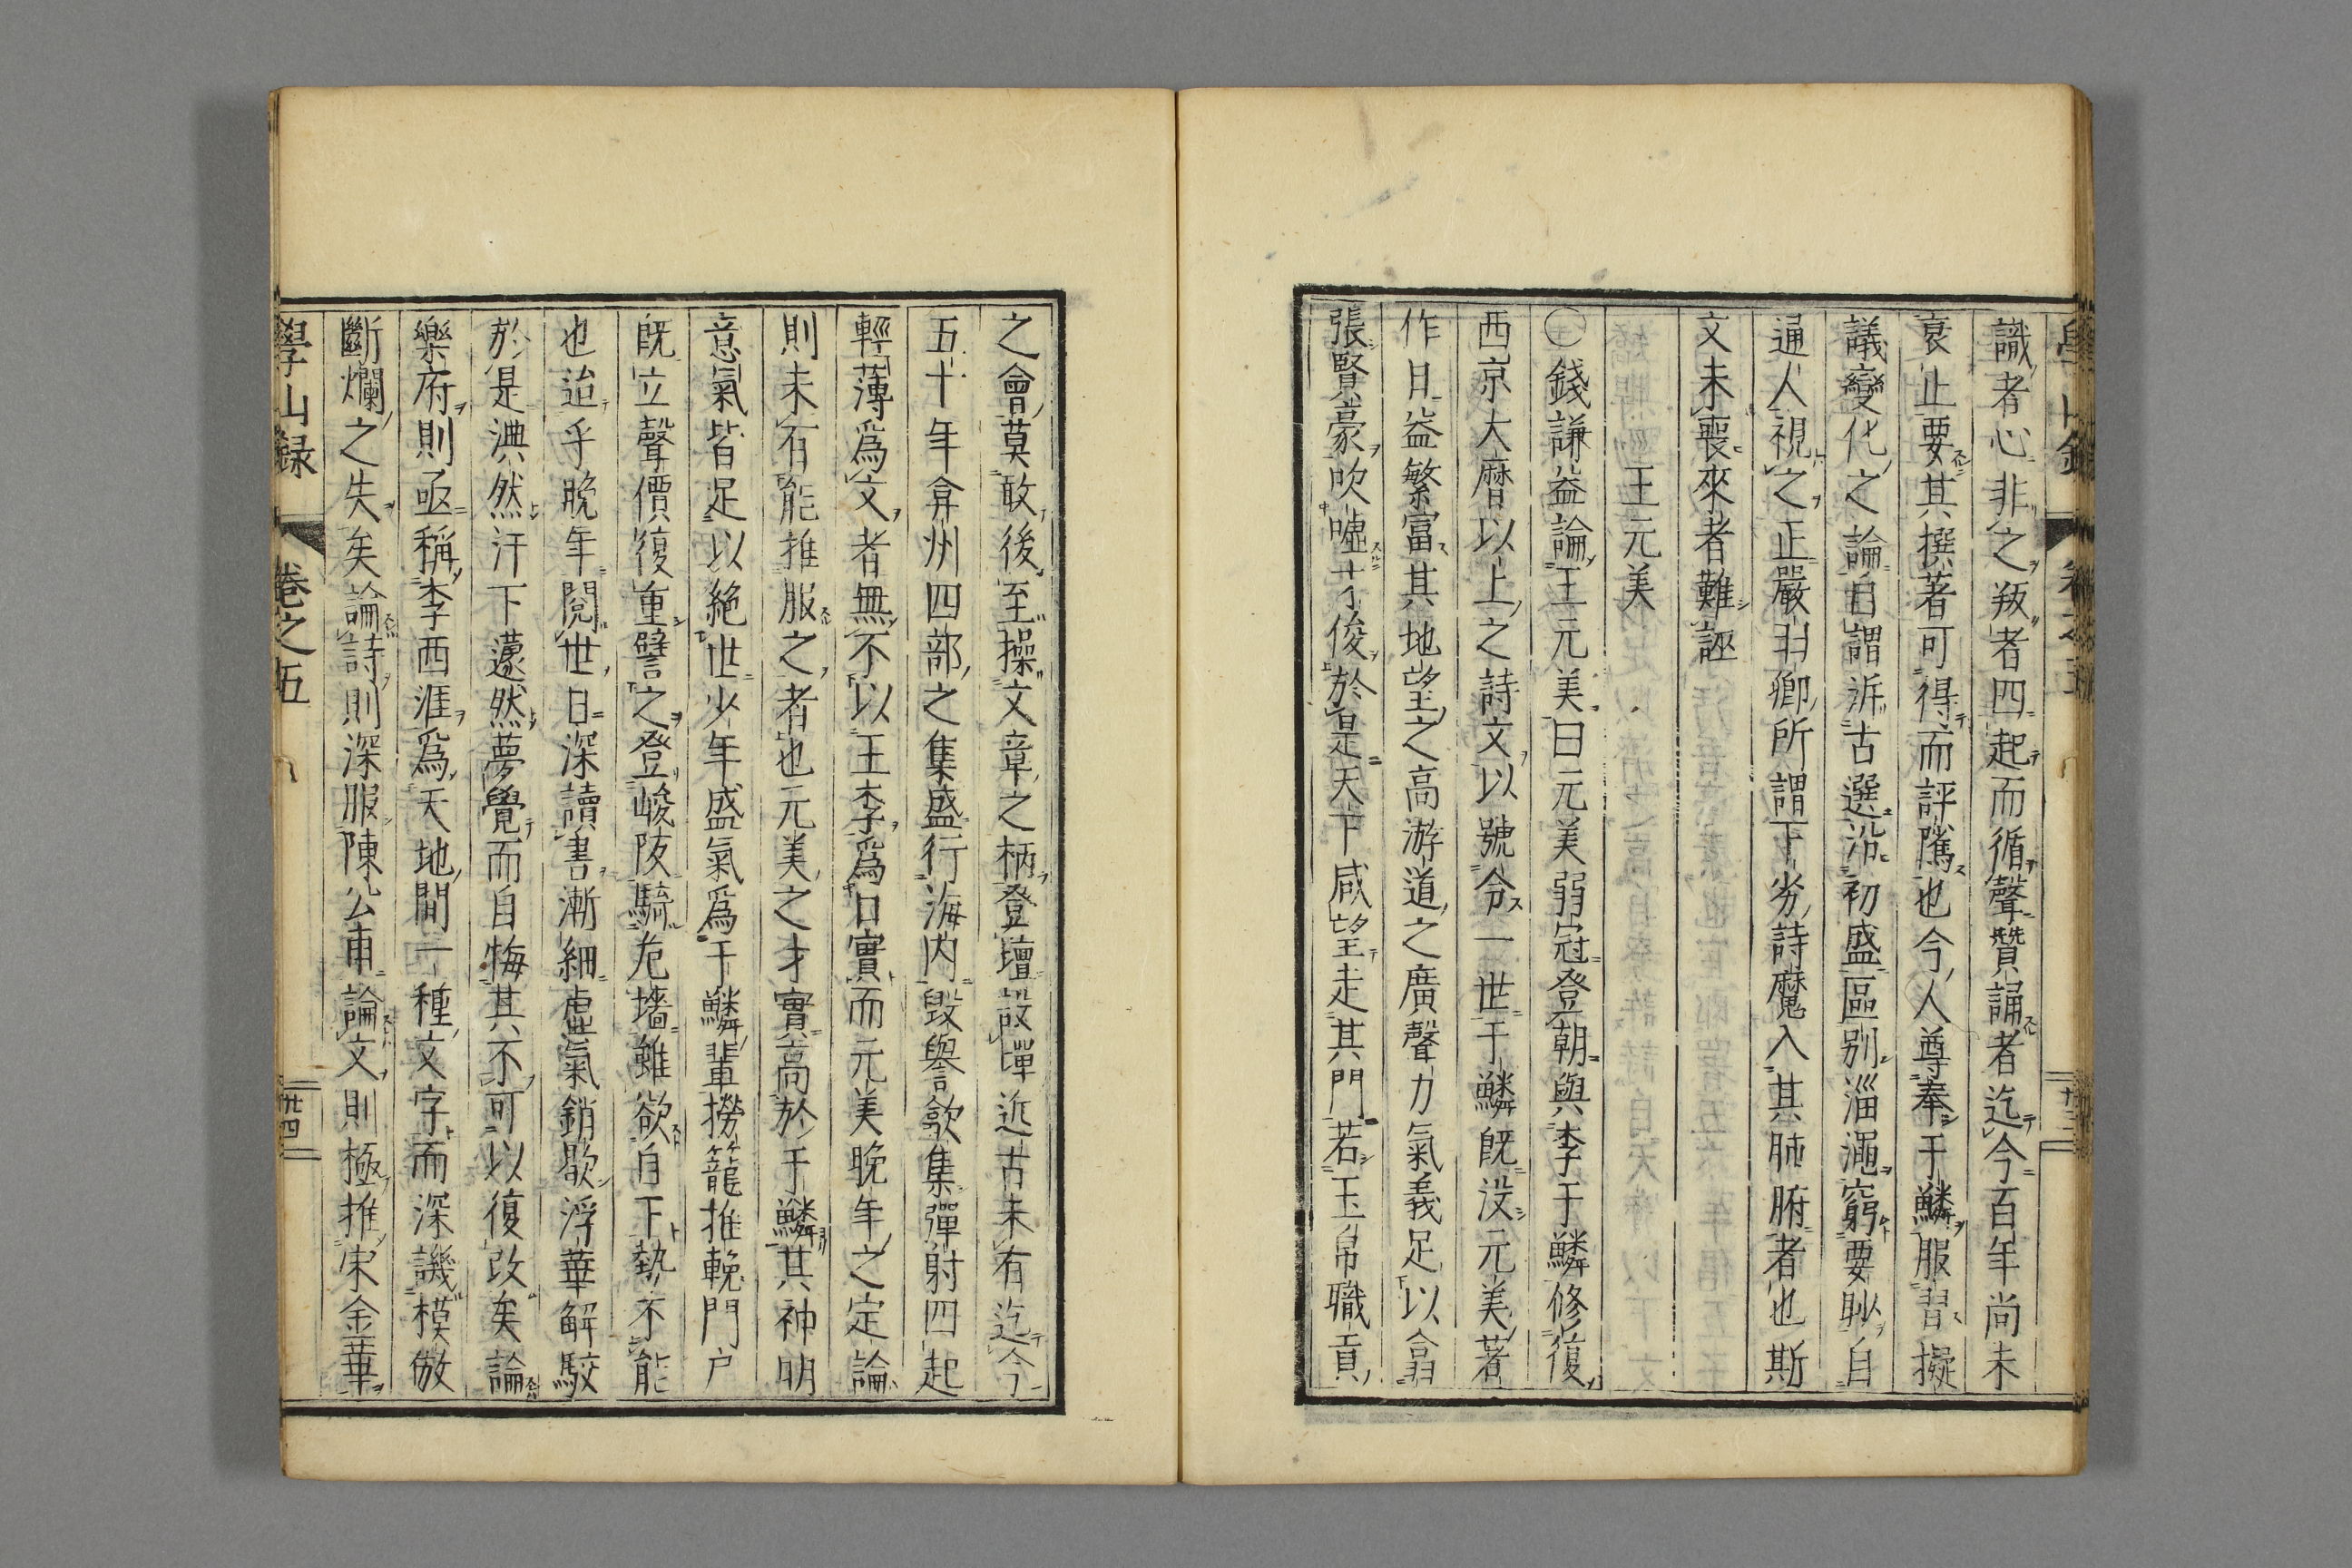 識者心非之叛者四起而循聲贊誦者迄今百年尚未
衰止要其撰著可得而評隲也今人尊奉于鱗服習擬
議變化之論自謂泝古選沿初盛區別淄澠窮要眇自
通人視之正嚴羽卿所謂下劣詩魔入其肺腑者也斯
文未喪來者難誣
王元美
○錢謙益論王元美曰元美弱冠登朝與李于鱗修復
西京大曆以上之詩文以號令一世于鱗既沒元美著
作日益繁富其地望之高游道之廣聲力氣義足以翕
張賢豪吹噓才俊於是天下咸望走其門若玉帛職貢
之會莫敢後至操文章之柄登壇設墠近古未有迄今
五十年弇州四部之集盛行海內毀譽歙集彈射四起
輕薄爲文者無不以王李爲口實而元美晚年之定論
則未有能推服之者也元美之才實高於于鱗其神明
意氣皆足以絕世少年盛氣爲于鱗輩撈籠推輓門户
既立聲價復重譬之登峻阪騎危墻雖欲自下勢不能
也迨乎晚年閱世日深讀書漸細虛氣銷歇浮華解駁
於是淟然汗下蘧然夢覺而自悔其不可以復改矣論
樂府則亟稱李西涯爲天地間一種文字而深譏模倣
斷爛之失矣論詩則深服陳公甫論文則極推宋金華
學山録　卷之五　廿四